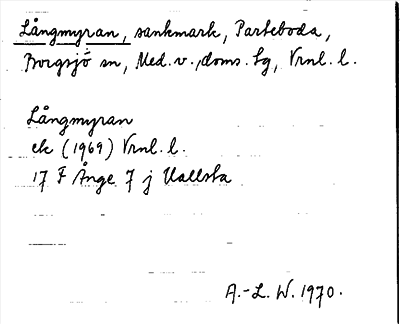 Långmyran, sankmark, Parteboda,
Borgsjö sn, Med. v., doms. tg, Vrnl. l.
Långmyran
ek (1969) Vrnl. l.
17 F Ånge 7 j Vallsta
A.-L. W. 1970.